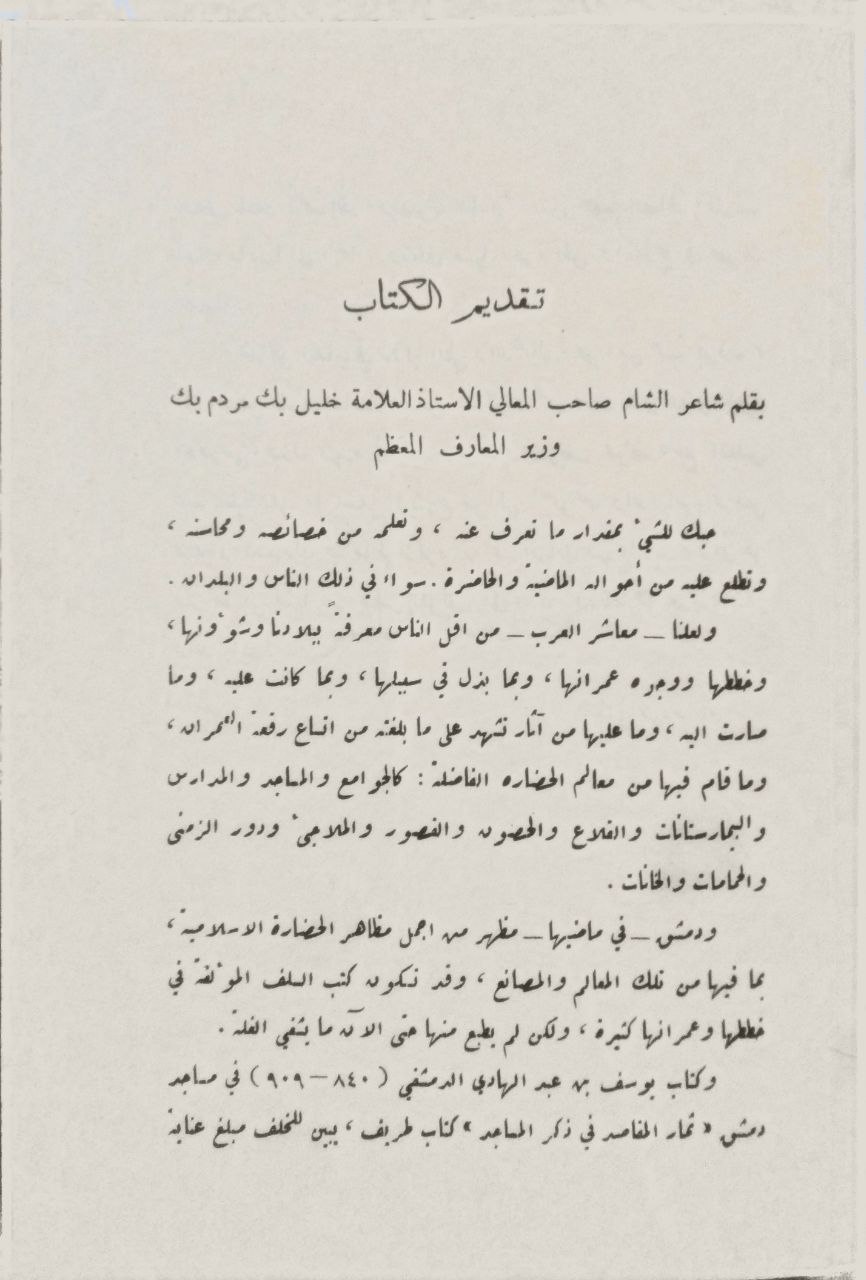 تقديم الكتاب
بقلم شاعر الشام صاحب المعالي الاستاذ العلامة خليل بك مردم بك
وزير المعارف المعظم
حبك للشيء بمقدار ما تعرف عنه ، وتعلمه من خصائصه ومحاسنه ،
وتطلع عليه من أحواله الماضية والحاضرة . سواء في ذلك الناس والبلدان .
ولعلنا – معاشر العرب – من اقل الناس معرفةً ببلادنا وشؤونها ،
وخططها ووجوه عمرانها ، وبما بذل في سبيلها ، وبما كانت عليه ، وما
صارت اليه ، وما عليها من آثار تشهد على ما بلغته من اتساع رقعة العمران ،
وما قام فيها من معالم الحضاره الفاضلة : كالجوامع والمساجد والمدارس
والبيمارستانات والقلاع والحصون والقصور والملاجىء ودور الزمنى
والحمامات والخانات .
ودمشق – في ماضيها – مظهر من اجمل مظاهر الحضارة الاسلامية ،
بما فيها من تلك المعالم والمصانع ، وقد تكون كتب السلف المؤلفة في
خططها وعمرانها كثيرة ، ولكن لم يطبع منها حتى الآن ما يشفي الغلة .
وكتاب يوسف بن عبد الهادي الدمشقي ( ٨٤٠ – ٩٠٩ ) في مساجد
دمشق « ثمار المقاصد في ذكر المساجد » كتاب طريف ، يبين للخلف مبلغ عناية